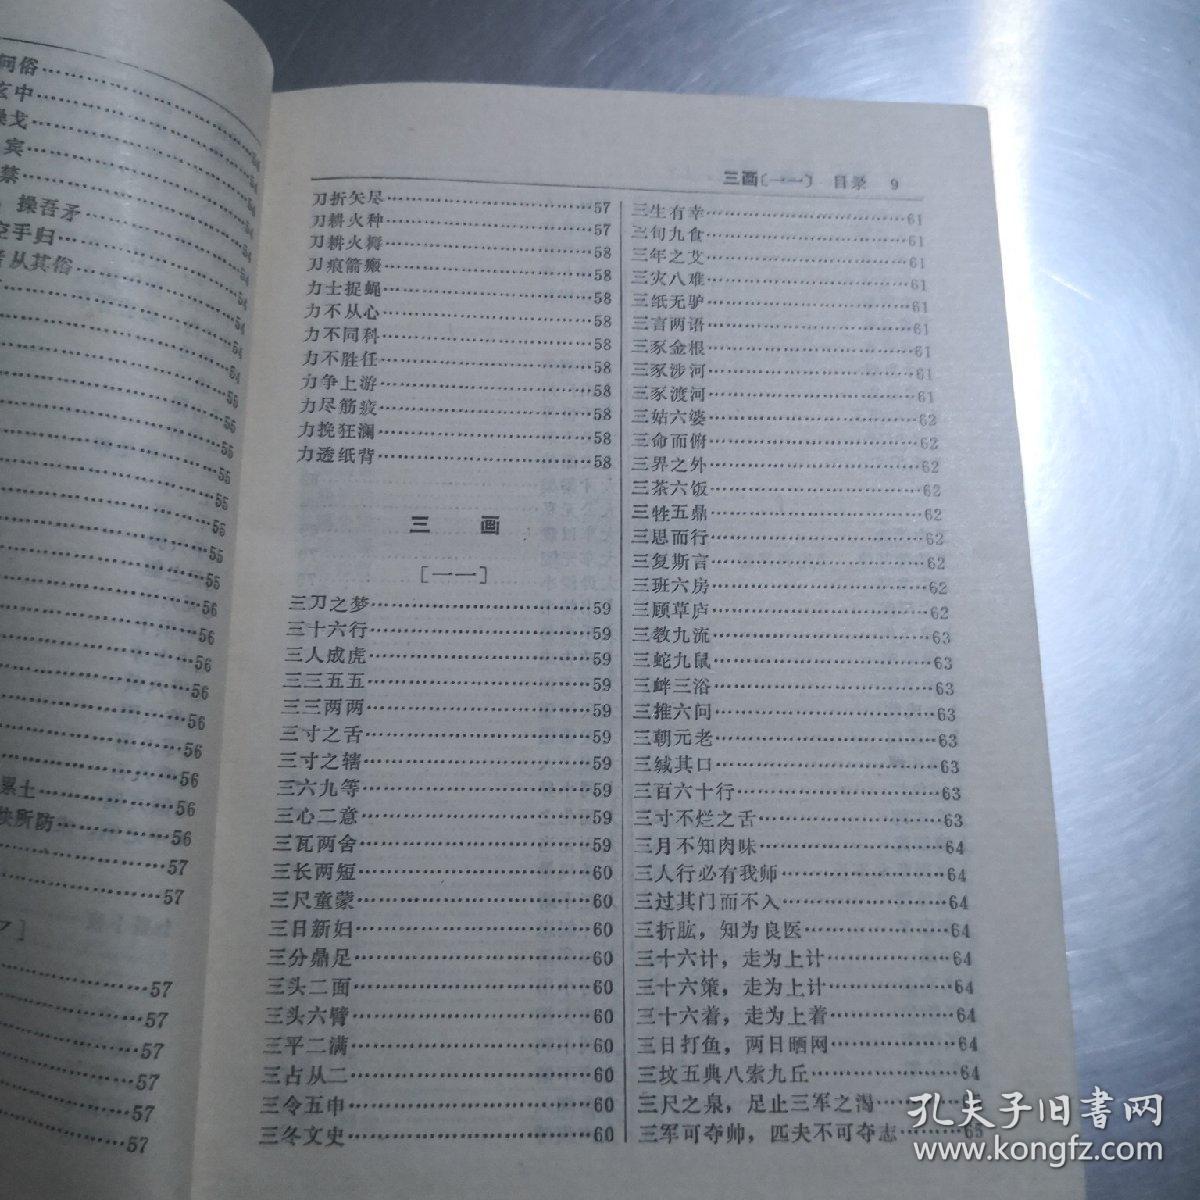 问俗
54
弦中
54
操戈
54
宾
54
禁
54
操吾矛
54
空手归
54
者从其俗
54
54
54
54
55
55
55
55
55
55
55
56
56
56
56
56
56
56
累土
56
所防
56
57
57
57
57
57
57
57
57
三画〔一一〕 目录 9
刀折矢尽 57
刀耕火种 57
刀耕火耨 58
刀痕箭瘢 58
力士捉蝇 58
力不从心 58
力不同科 58
力不胜任 58
力争上游 58
力尽筋疲 58
力挽狂澜 58
力透纸背 58
三 画
〔一一〕
三刀之梦 59
三十六行 59
三人成虎 59
三三五五 59
三三两两 59
三寸之舌 59
三寸之辖 59
三六九等 59
三心二意 59
三瓦两舍 59
三长两短 60
三尺童蒙 60
三日新妇 60
三分鼎足 60
三头二面 60
三头六臂 60
三平二满 60
三占从二 60
三令五申 60
三冬文史 60
三生有幸 61
三旬九食 61
三年之艾 61
三灾八难 61
三纸无驴 61
三言两语 61
三豕金根 61
三豕涉河 61
三豕渡河 61
三姑六婆 62
三命而俯 62
三界之外 62
三茶六饭 62
三牲五鼎 62
三思而行 62
三复斯言 62
三班六房 62
三顾草庐 62
三教九流 63
三蛇九鼠 63
三衅三浴 63
三推六问 63
三朝元老 63
三缄其口 63
三百六十行 63
三寸不烂之舌 63
三月不知肉味 64
三人行必有我师 64
三过其门而不入 64
三折肱，知为良医 64
三十六计，走为上计 64
三十六策，走为上计 64
三十六着，走为上着 64
三日打鱼，两日晒网 64
三坟五典八索九丘 64
三尺之泉，足止三军之渴
三军可夺帅，匹夫不可夺志 65
孔夫子旧书网
www.kongfz.com